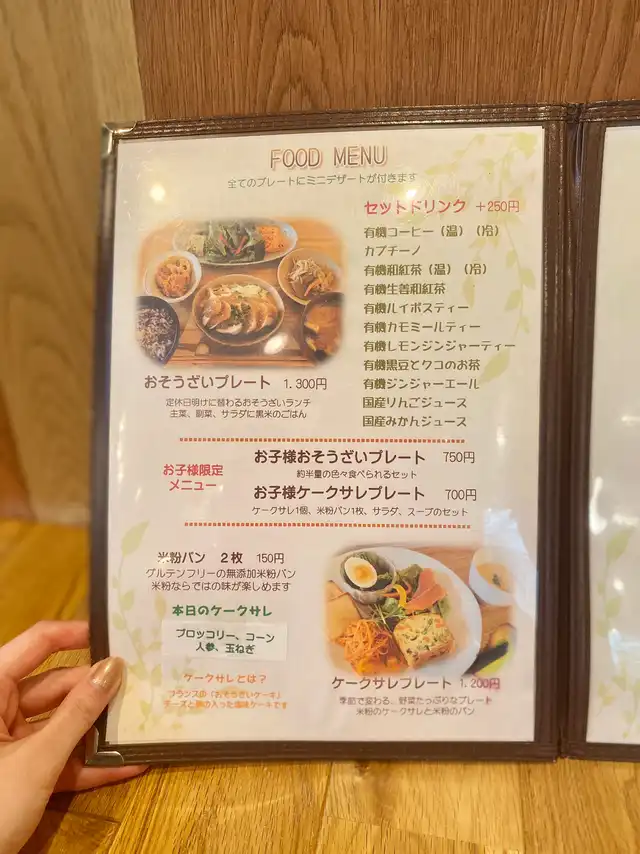 FOOD MENU
全てのプレートにミニデザートが付きます
セットドリンク +250円
有機コーヒー（温）（冷）
カプチーノ
有機和紅茶（温）（冷）
有機生姜和紅茶
有機ルイボスティー
有機カモミールティー
有機レモンジンジャーティー
有機黒豆とクコのお茶
有機ジンジャーエール
国産りんごジュース
国産みかんジュース
おそうざいプレート 1.300円
定休日明けに替わるおそうざいランチ
主菜、副菜、サラダに黒米のごはん
お子様限定
メニュー
お子様おそうざいプレート 750円
約半量の色々食べられるセット
お子様ケークサレプレート 700円
ケークサレ1個、米粉パン1枚、サラダ、スープのセット
米粉パン 2枚 150円
グルテンフリーの無添加米粉パン
米粉ならではの味が楽しめます
本日のケークサレ
ブロッコリー、コーン
人参、玉ねぎ
ケークサレとは？
フランスの「おそうざいケーキ」
チーズと卵の入った塩味ケーキです
ケークサレプレート 1.200円
季節で変わる、野菜たっぷりなプレート
米粉のケークサレと米粉のパン